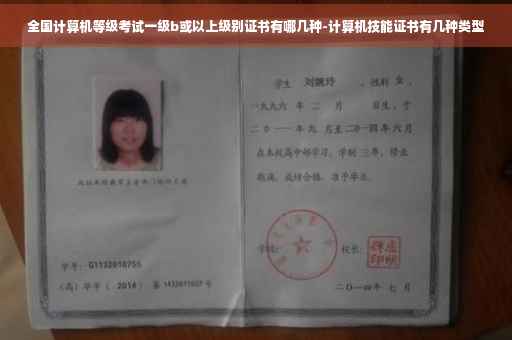 全国计算机等级考试一级b或以上级别证书有哪几种-计算机技能证书有几种类型
学生 刘婉玲 ，性别 女 ，
一九九六 年 二 月 日生，于
二〇一一年九 月至二〇一四年 六月
在本校高中部学习，学制 三年，修业
期满，成绩合格，准予毕业。
学号：G1132010755
（高）毕字（ 2014 ）第 1432011027 号
学校：
校长：
二〇一四年 七 月